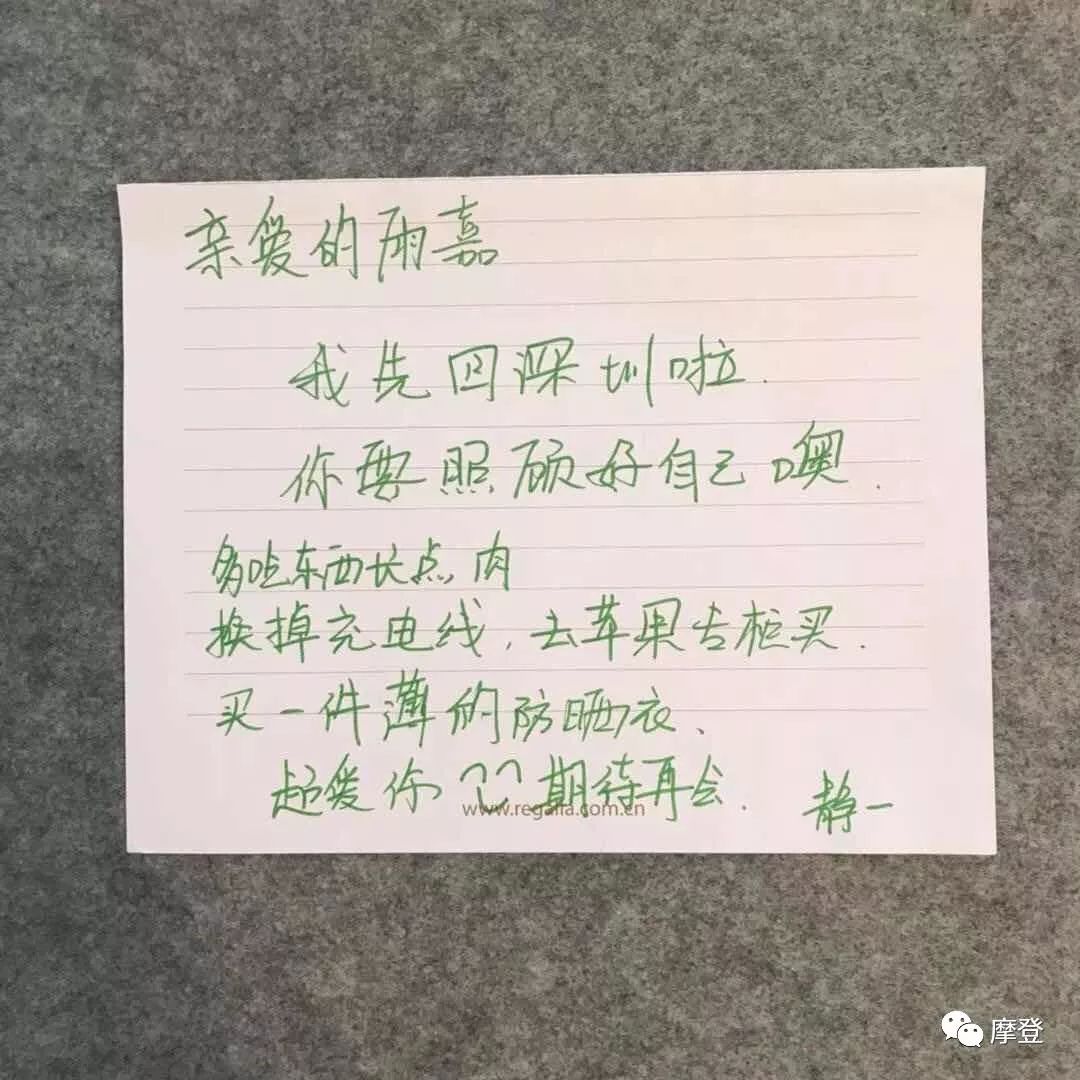 亲爱的雨嘉
我先回深圳啦.
你要照顾好自己噢.
多吃东西长点肉
换掉充电线,去苹果专柜买.
买一件薄的防晒衣、
超爱你 期待再会. 静一
www.regalia.com.cn
摩登